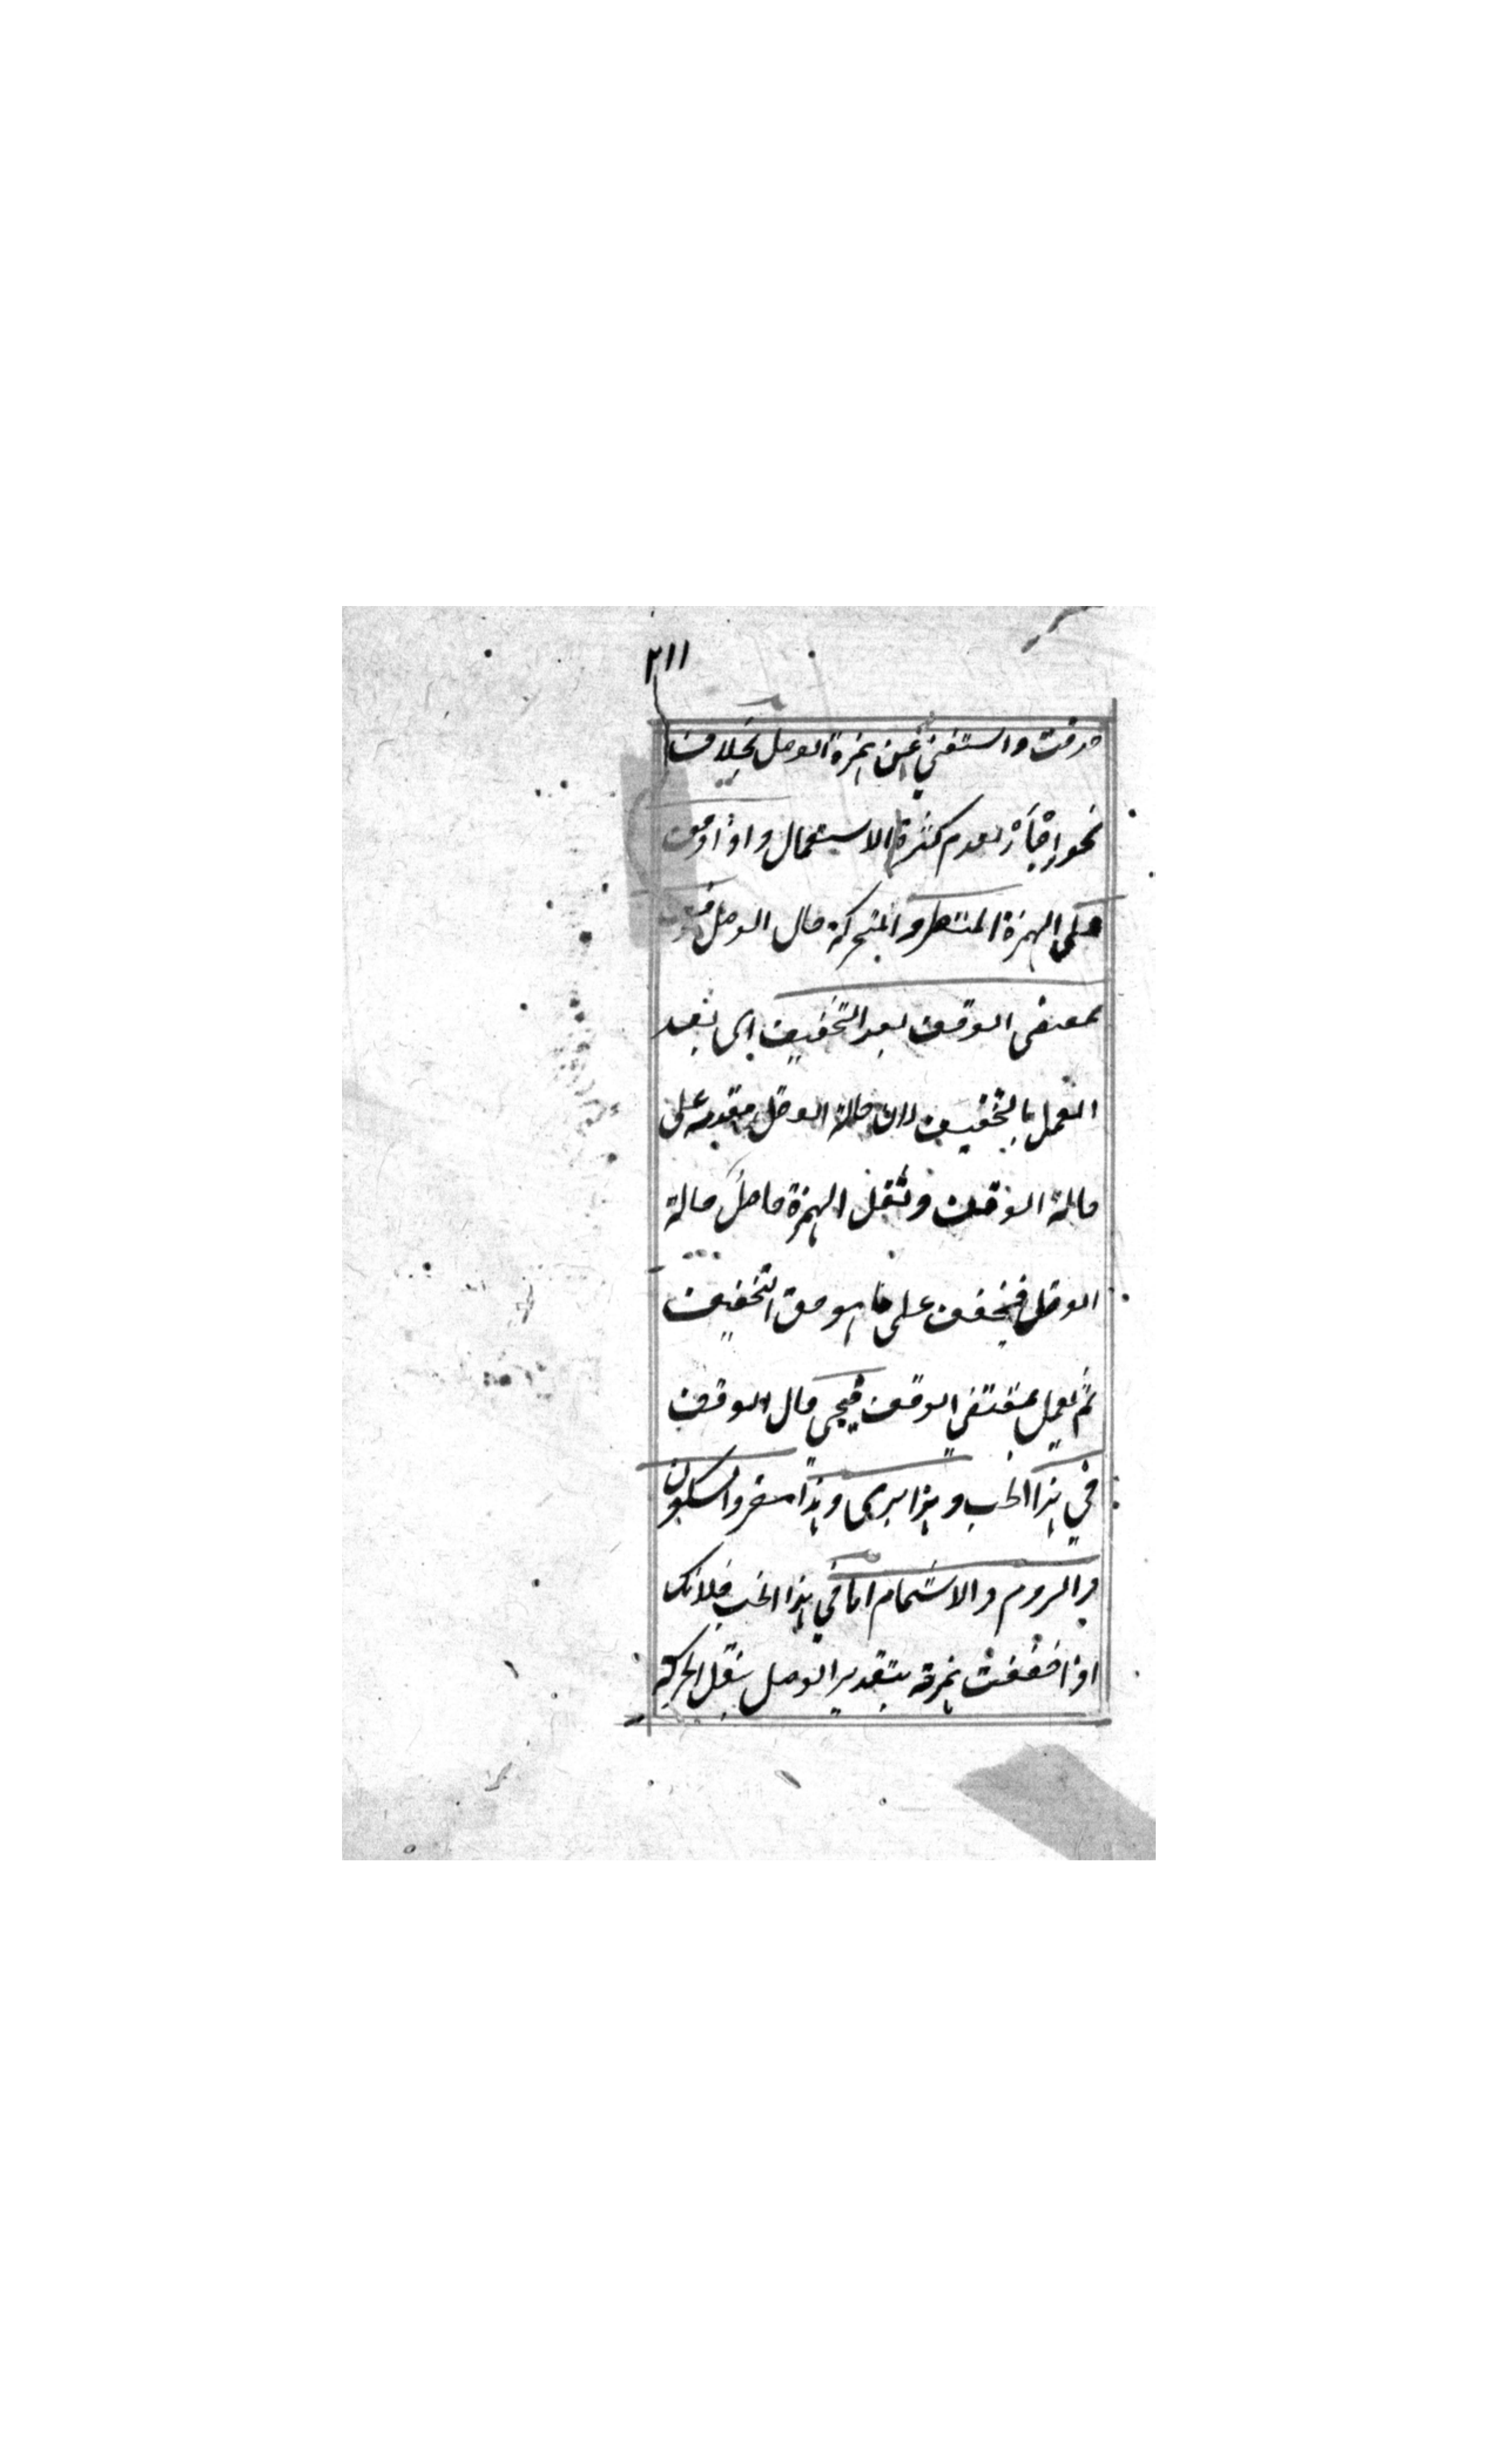 ٢١١
حذفت واستغني عن همزة الوصل بخلاف
نحو اجأر لعدم كثرة الاستعمال واذا وقف
على الهمزة المتطرفة المتحركة حال الوصل
بمقتضى الوقف بعد التخفيف اى بعد
العمل بالتخفيف لان حالة الوصل مقدمة على
حالة الوقف وثقل الهمزة حاصل حالة
الوصل فيخفف على ما هو حق التخفيف
ثم يعمل بمقتضى الوقف فيجئ حال الوقف
في هذا الخب وهذا برى وهذا مقرو السكون
والروم والاشمام اما في هذا الخب فلانك
اذا خففت همزته بتقدير الوصل بنقل الحركة